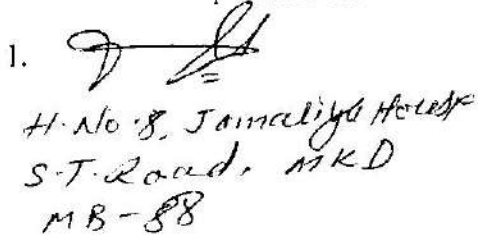 1.
H. No. 8, Jamaliya House
S.T. Road, MKD
MB-88